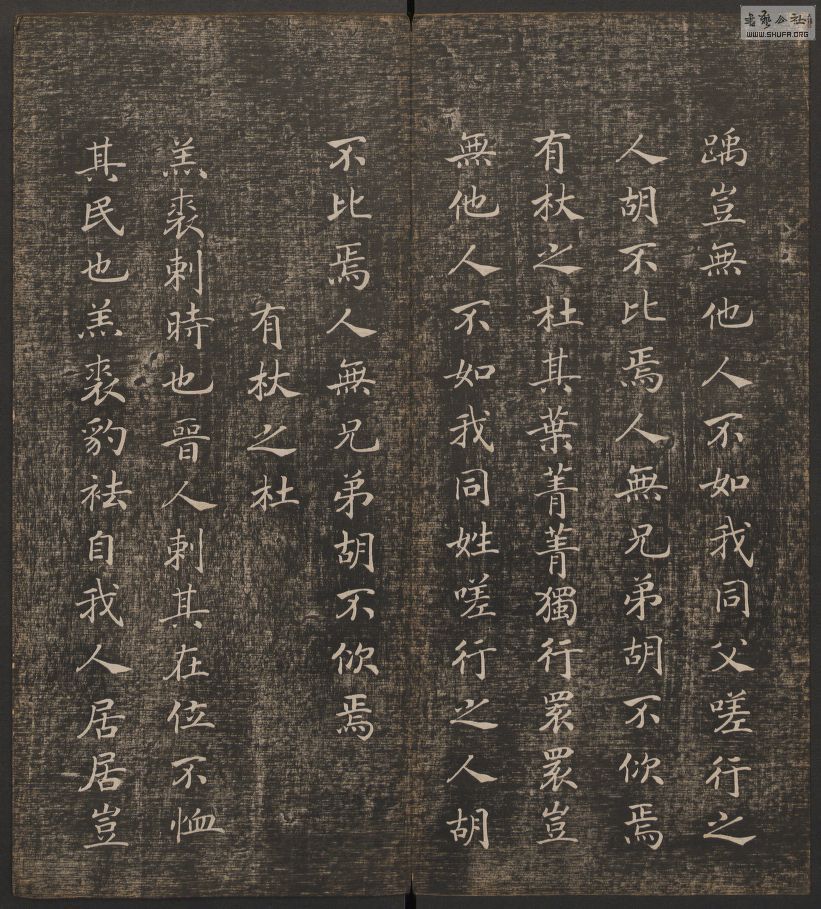 踽豈無他人不如我同父嗟行之
人胡不比焉人無兄弟胡不佽焉
有杕之杜其葉菁菁獨行睘睘豈
無他人不如我同姓嗟行之人胡
不比焉人無兄弟胡不佽焉
有杕之杜
羔裘刺時也晉人刺其在位不恤
其民也羔裘豹袪自我人居居豈
書藝公社
WWW.SHUFA.ORG